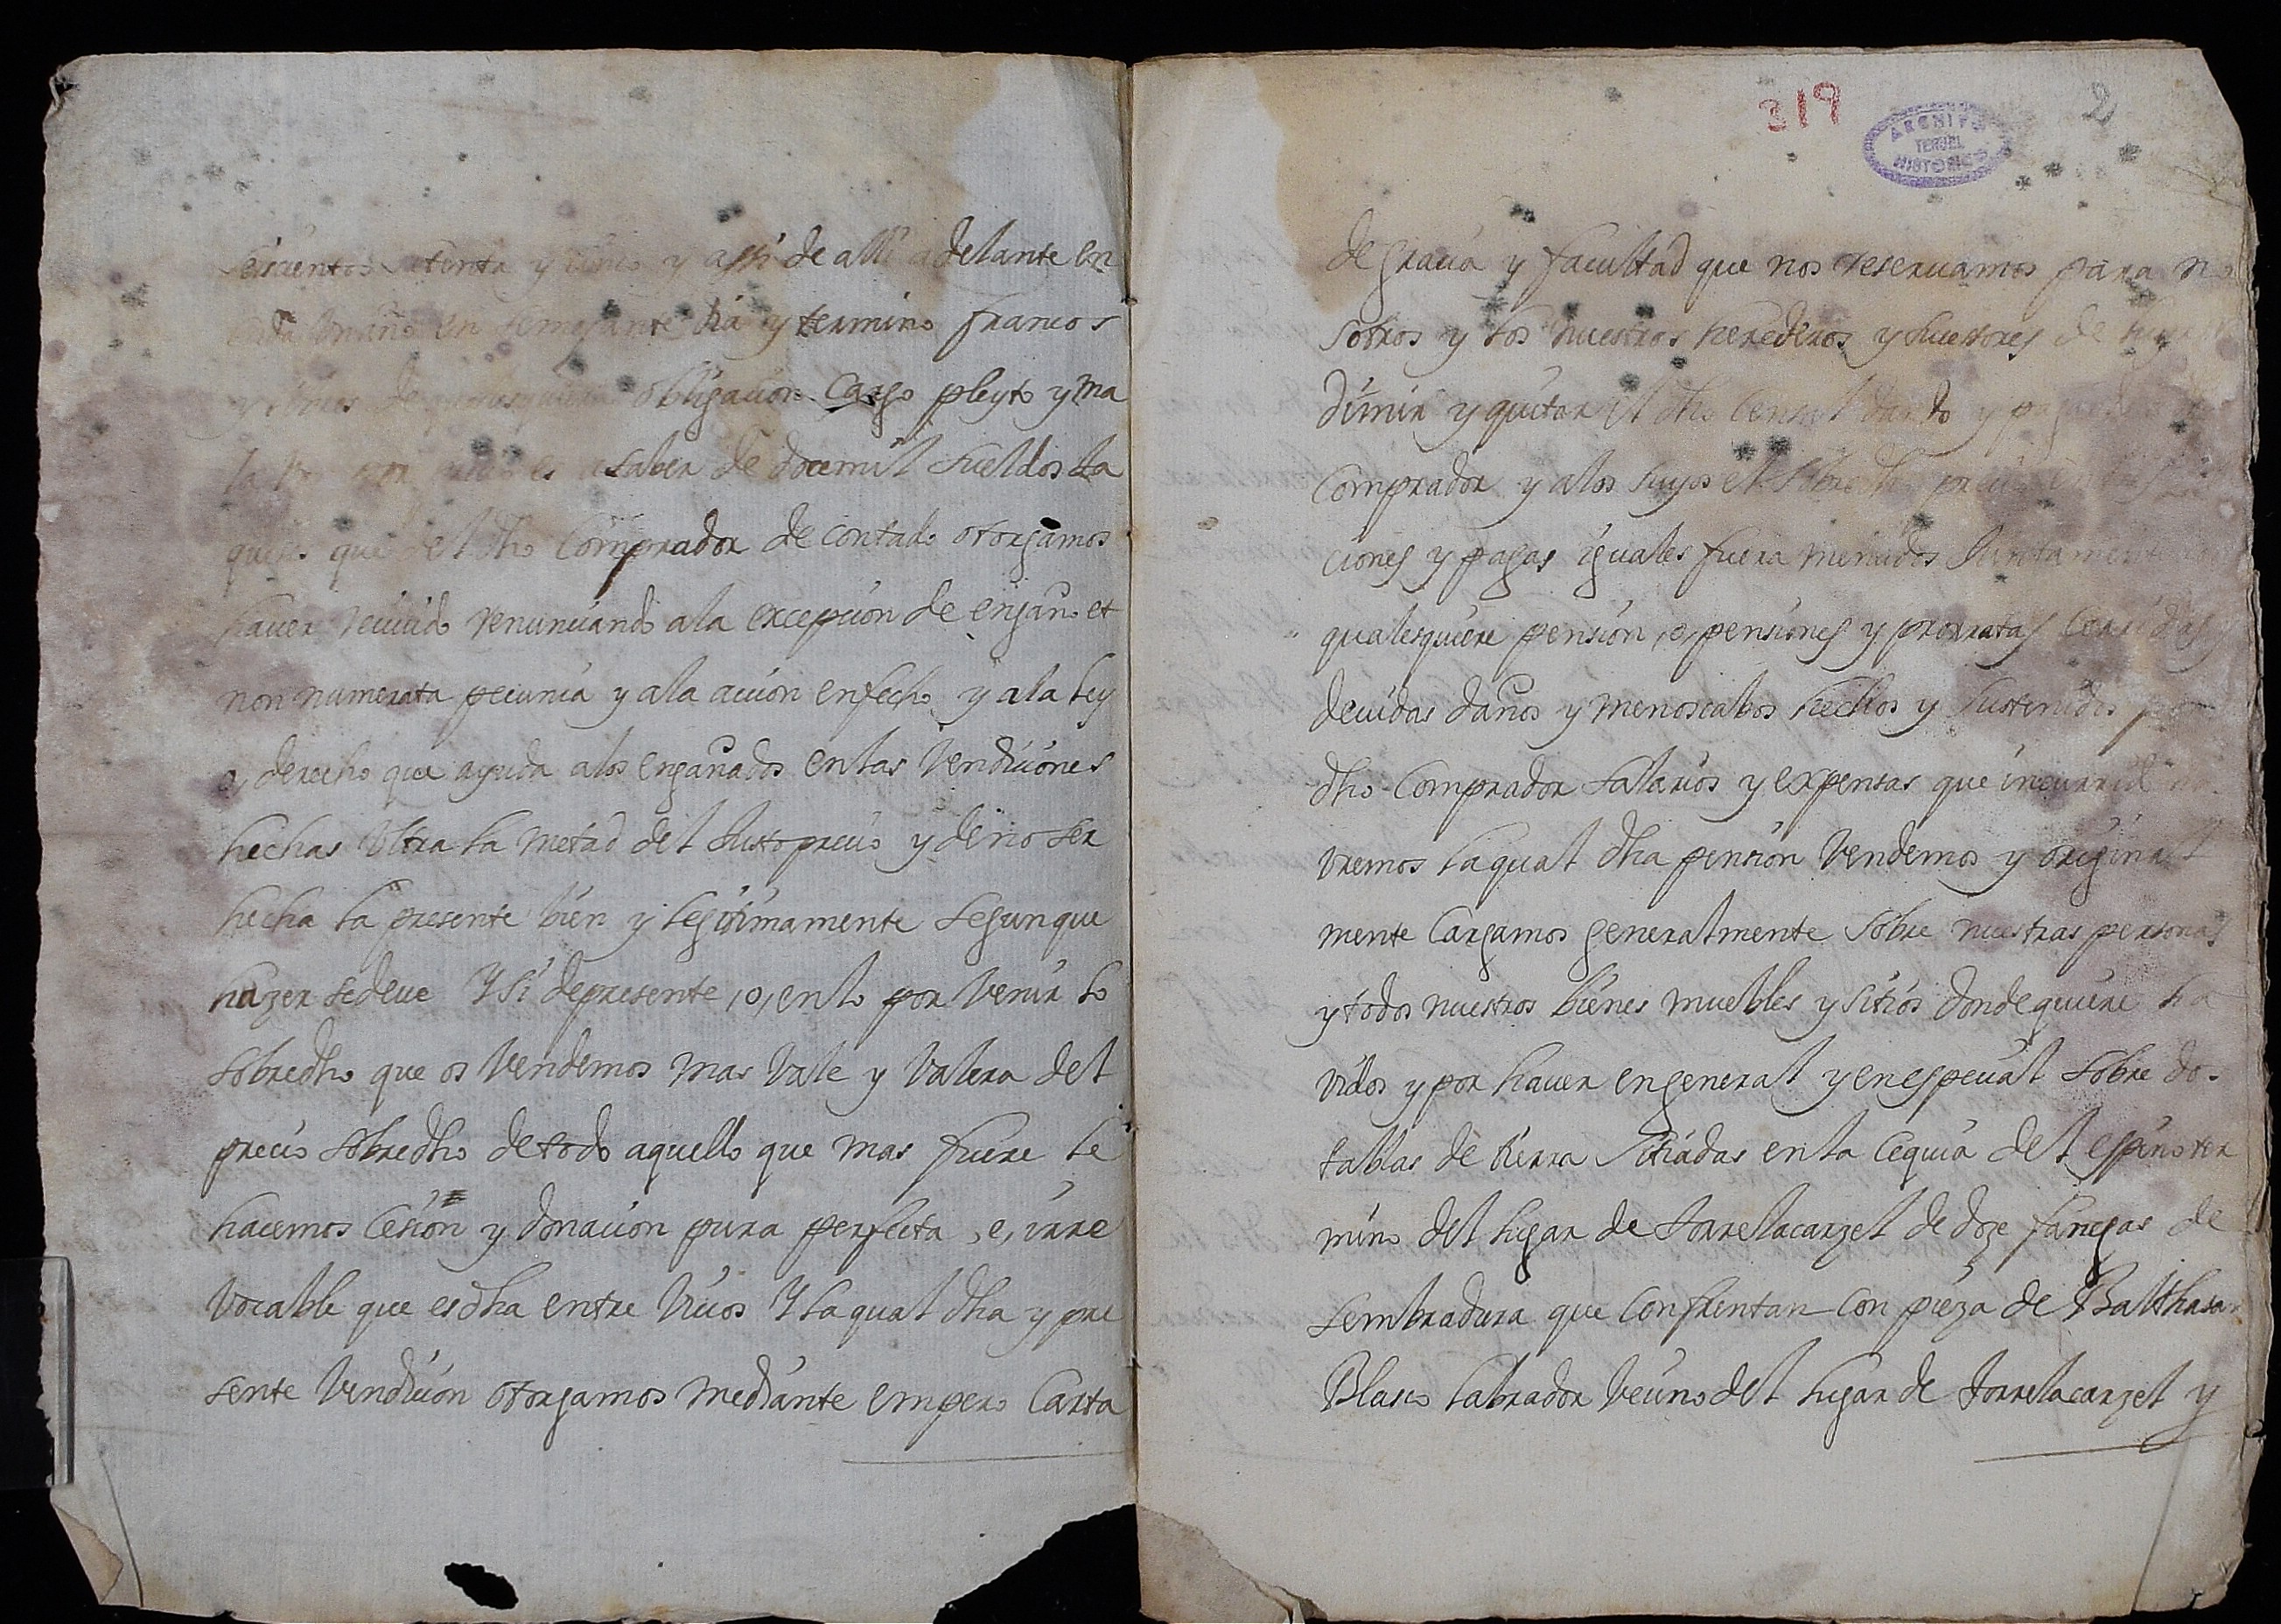 seiscientos setenta y cinco y assi de alli adelante en
cada un año en semejante dia y termino francos
y de qualesquiere obligacion cargo pleyto y ma
la es asaber de doce mil sueldos Ja
queses que del dho Comprador de contado otorgamos
hauer reciuido renunciando ala excepcion de engaño et
non numerata pecunia y ala accion enfecho y ala ley
o, derecho que ayuda alos engañados en las Vendiciones
hechas Ultra la metad del Justo precio y de no ser
hecha la presente bien y legitimamente segun que
hazer se deue Y si de presente ,o, en lo por Venir lo
sobredho que os Vendemos mas Vale y Valera del
precio sobredho de todo aquello que mas fuere le
hacemos Cesion y donacion pura perfecta ,e, irre
vocable que es dha entre Viuos Y la qual dha y pre
sente Vendicion otorgamos mediante empero Carta
319
2
ARCHIVO
TERUEL
HISTORICO
de gracia y facultad que nos reseruamos para no
sotros y los nuestros herederos y sucessores de
dimir y quitar el dho Censal dando y pagando
Comprador y alos suyos el sobredho precio en
ciones y pagas iguales fuera menudos Juntamente
qualesquiere pension ,o, pensiones y prorratas Corridas
deuidas daños y menoscabos hechos y sustenidos por
dho Comprador salarios y expensas que incurrid no
vremos la qual dha pension Vendemos y original
mente Cargamos generalmente sobre nuestras personas
y todos nuestros bienes muebles y sitios donde quiere ha
vidos y por hauer en general y en especial sobre do.
tablas de tierra sitiadas en la Cequia del espino ter
mino del lugar de Torrelacarzel de doze fanegas de
sembradura que Confrentan Con pieza de Balthasar
Blasco labrador Vecino del lugar de Torrelacarzel y